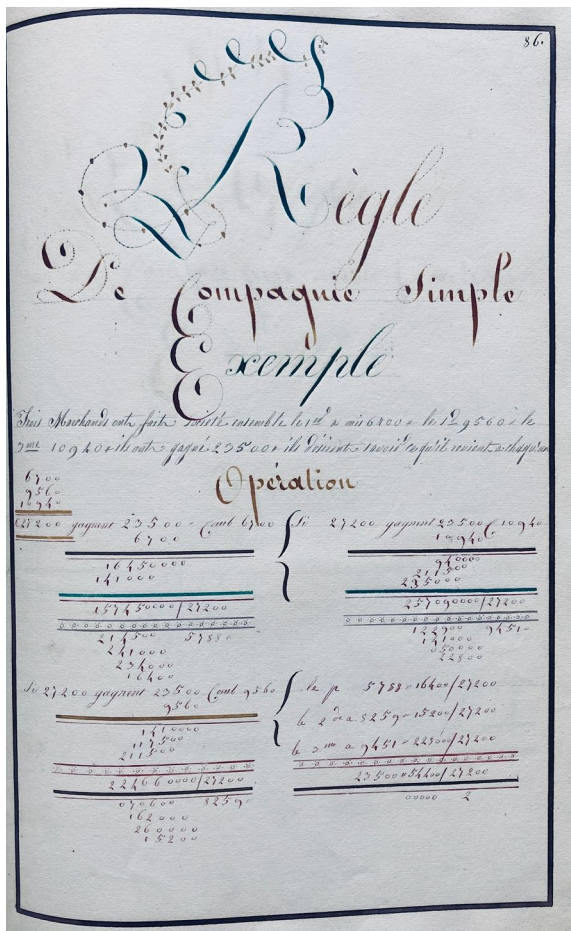 86.
Règle
De Compagnie Simple
Exemple
Trois Marchands ont fait société ensemble le 1er a mis 6700 # le 2e 9560 # le
3me 10940 # ils ont gagné 23500 # ils désirent savoir ce qu'il revient a chaqu'un
Opération
6700
9560
10940
27200 gagnent 23500 = Comb 6700
6700
16450000
141000
157450000/27200
214500 5788 #
241000
234000
16400
Si 27200 gagnent 23500 C 10940
10940
940000
211500
235000
257090000/27200
122900 9451 #
141000
050000
22800
Si 27200 gagnent 23500 Comb 9560
9560
1410000
117500
211500
224660000/27200
070600 8259 #
162000
260000
15200
le p 5788 # 16400/27200
le 2e a 8259 # 15200/27200
le 3me a 9451 # 22800/27200
23500 # 54400/27200
00000 2